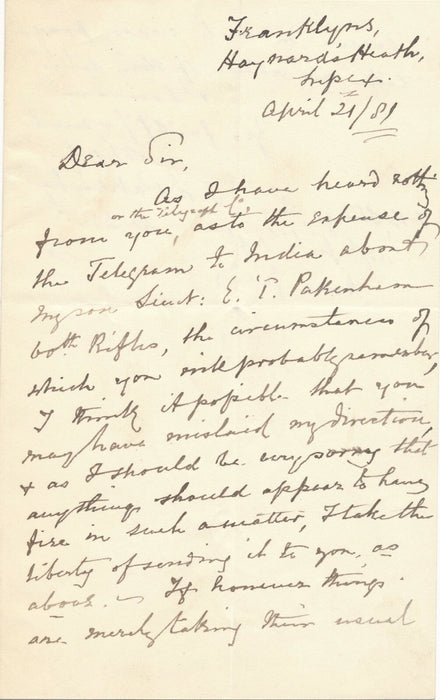 Franklyns,
Haywards Heath,
Sussex.
April 21/81
Dear Sir,
As I have heard nothg
or the Telegraph Co.,
from you, as to the expense of
the Telegram to India about
my son Lieut: E. T. Pakenham
60th Rifles, the circumstances of
which you will probably remember,
I think it possible that you
may have mislaid my direction,
& as I should be very sorry that
anything should appear to hang
fire in such a matter, I take the
liberty of sending it to you, as
above. — If however things
are merely taking their usual